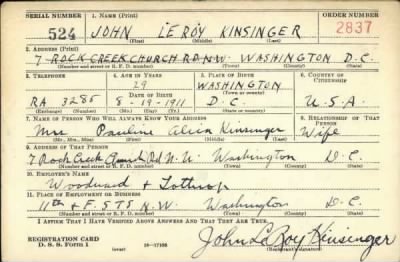 SERIAL NUMBER 1. NAME (Print) ORDER NUMBER
524 JOHN LE ROY KINSINGER 2837
(First) (Middle) (Last)
2. ADDRESS (Print)
7 ROCK CREEK CHURCH RD. N.W. WASHINGTON D.C.
(Number and street or R. F. D. number) (Town) (County) (State)
3. TELEPHONE 4. AGE IN YEARS 5. PLACE OF BIRTH 6. COUNTRY OF CITIZENSHIP
29 WASHINGTON
DATE OF BIRTH (Town or county)
RA 3285 8-19-1911 D.C. U.S.A.
(Exchange) (Number) (Mo.) (Day) (Yr.) (State or country)
7. NAME OF PERSON WHO WILL ALWAYS KNOW YOUR ADDRESS 8. RELATIONSHIP OF THAT PERSON
Mrs. Pauline Alicia Kinsinger Wife
(Mr., Mrs., Miss) (First) (Middle) (Last)
9. ADDRESS OF THAT PERSON
7 Rock Creek Church Rd. N.W. Washington D.C.
(Number and street or R. F. D. number) (Town) (County) (State)
10. EMPLOYER'S NAME
Woodward & Lothrop
11. PLACE OF EMPLOYMENT OR BUSINESS
11th & F. STS N.W. Washington D.C.
(Number and street or R. F. D. number) (Town) (County) (State)
I AFFIRM THAT I HAVE VERIFIED ABOVE ANSWERS AND THAT THEY ARE TRUE.
REGISTRATION CARD
D. S. S. FORM 1 (over) 16-17105 John Le Roy Kinsinger
(Registrant's signature)